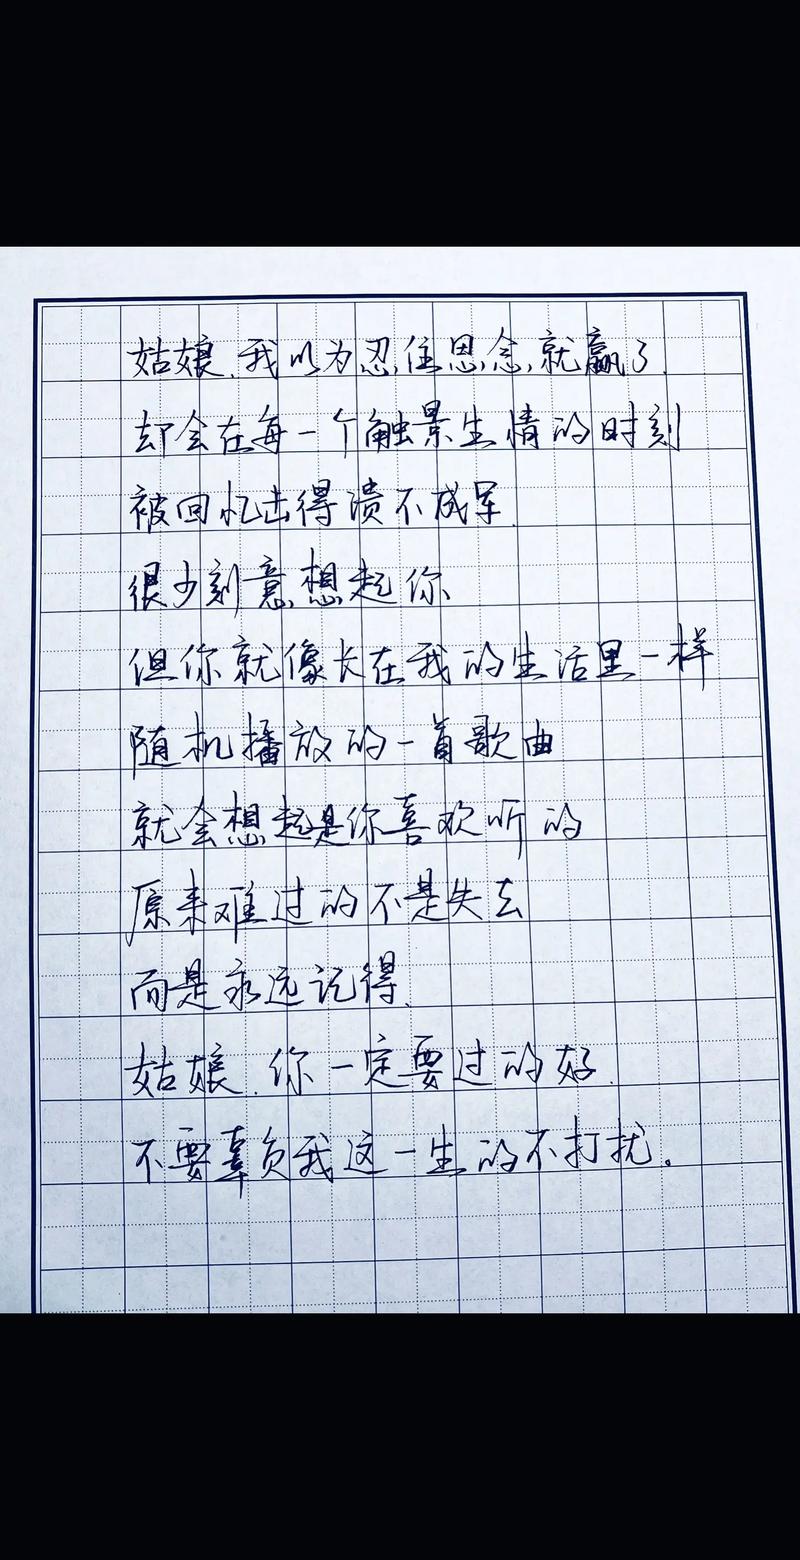 姑娘.我以为忍住思念就赢了.
却会在每一个触景生情的时刻
被回忆击得溃不成军.
很少刻意想起你
但你就像长在我的生活里一样
随机播放的一首歌曲
就会想起是你喜欢听的
原来难过的不是失去
而是永远记得.
姑娘.你一定要过的好.
不要辜负我这一生的不打扰。